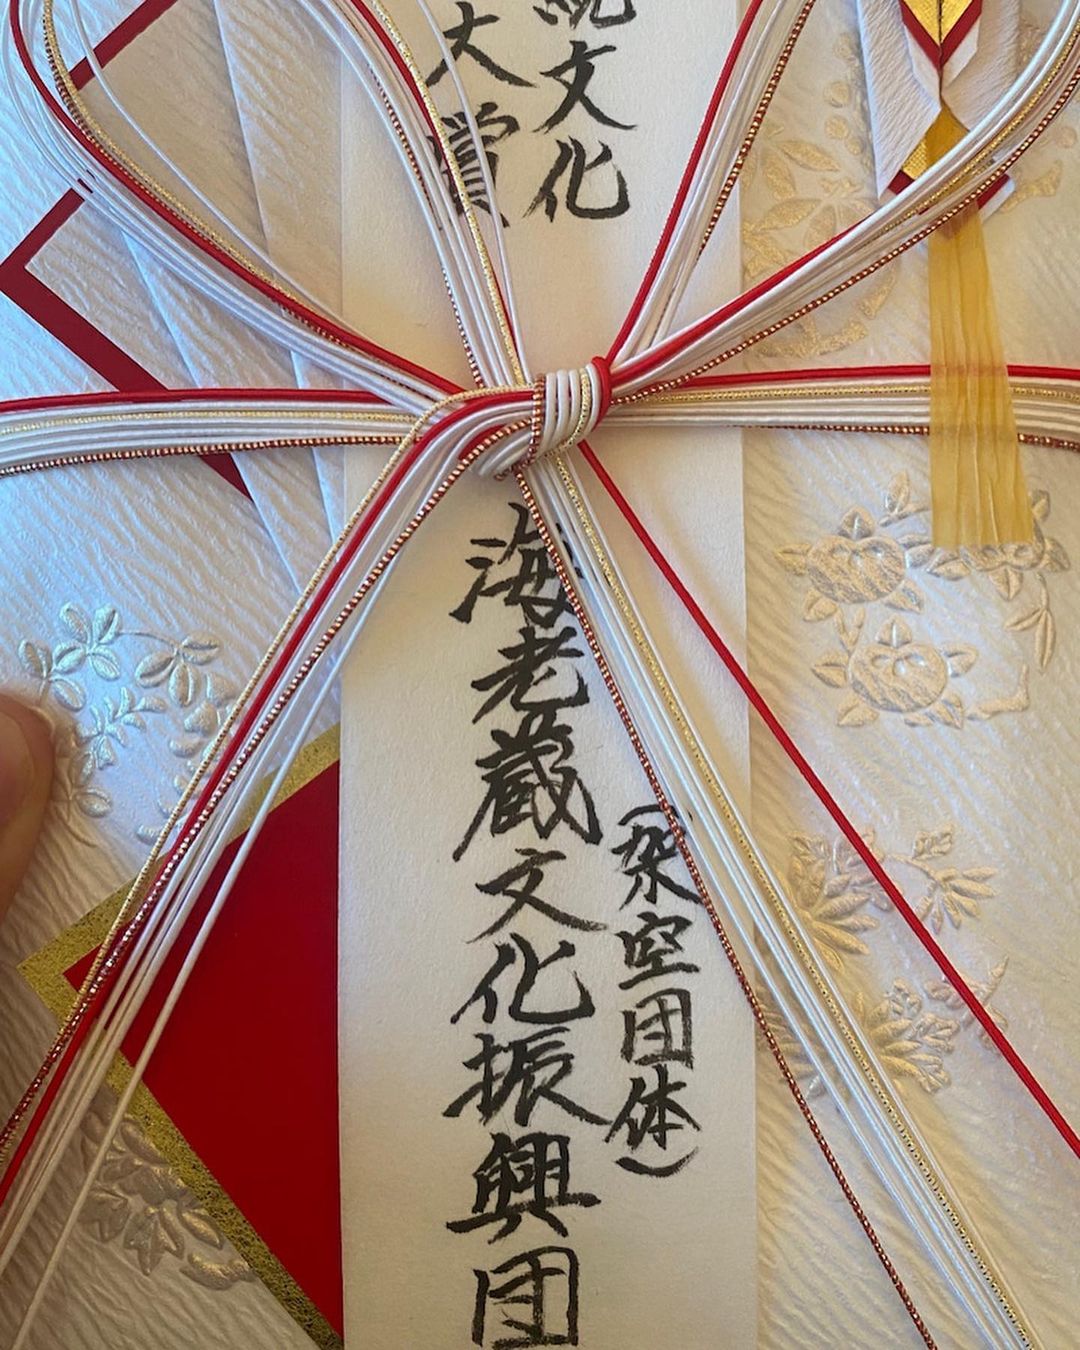 統文化
大賞
(架空団体)
海老蔵文化振興団